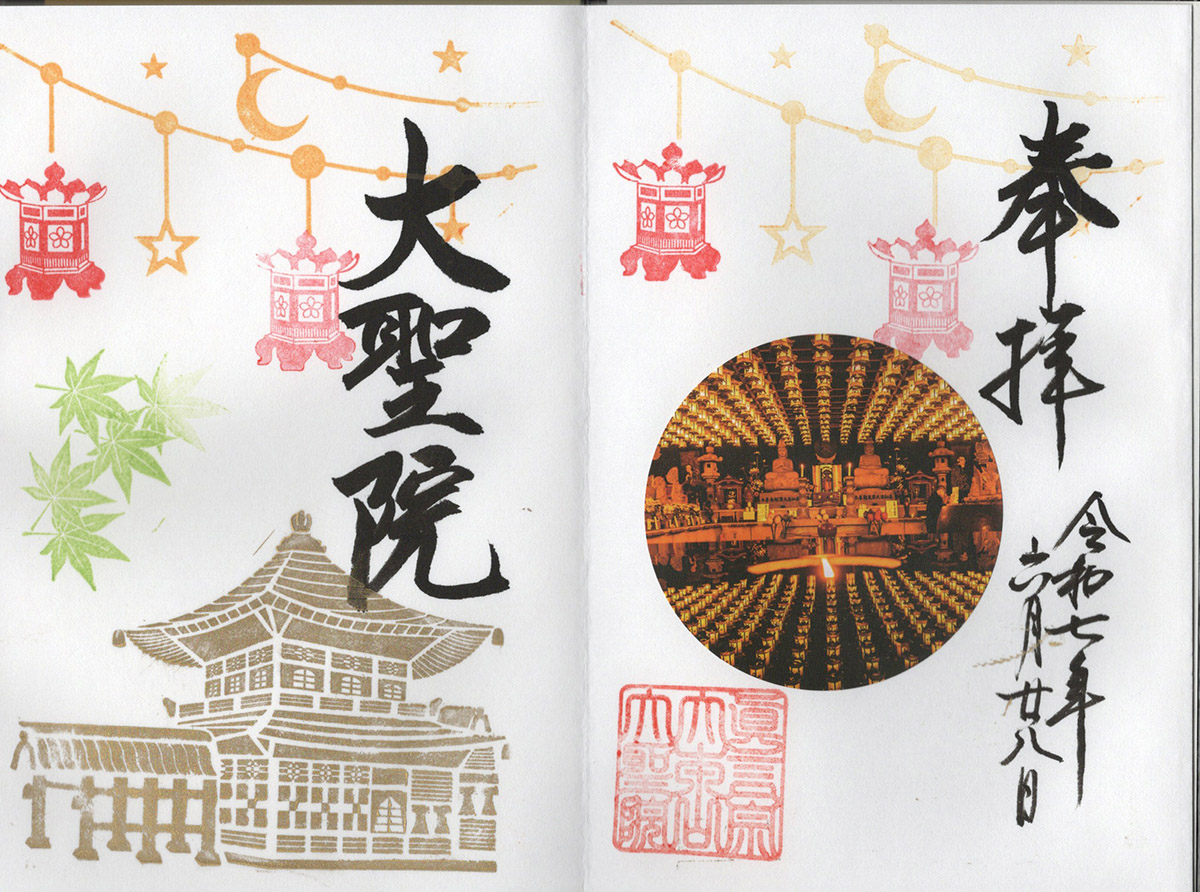 奉拝
令和七年
六月廿八日
眞言宗
大本山
大聖院
大聖院